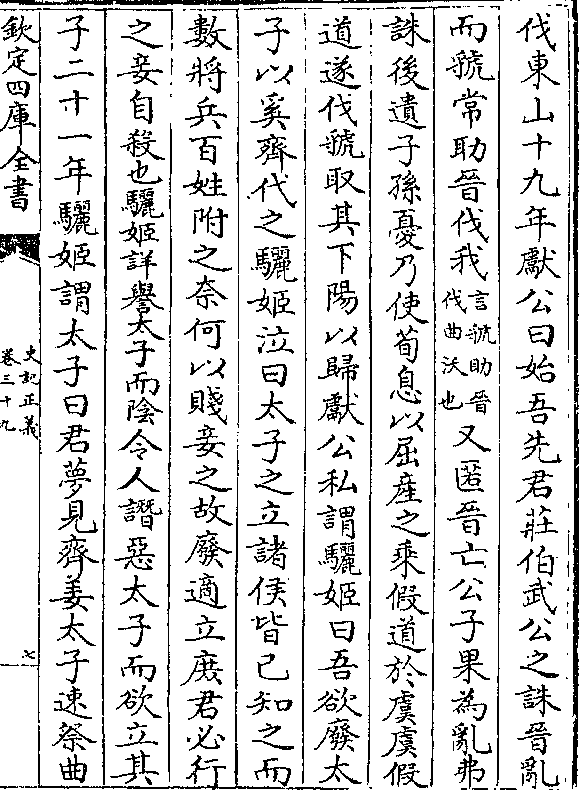 伐東山十九年獻公曰始吾先君莊伯武公之誅晉亂
而虢常助晉伐我言虢助晉伐曲沃也又匿晉亡公子果為亂弗
誅後遺子孫憂乃使荀息以屈産之乘假道於虞虞假
道遂伐虢取其下陽以歸獻公私謂驪姬曰吾欲廢太
子以奚齊代之驪姬泣曰太子之立諸侯皆已知之而
數將兵百姓附之奈何以賤妾之故廢適立庶君必行
之妾自殺也驪姬詳譽太子而陰令人譖惡太子而欲立其
子二十一年驪姬謂太子曰君夢見齊姜太子速祭曲
欽定四庫全書
史記正義
卷三十九
七